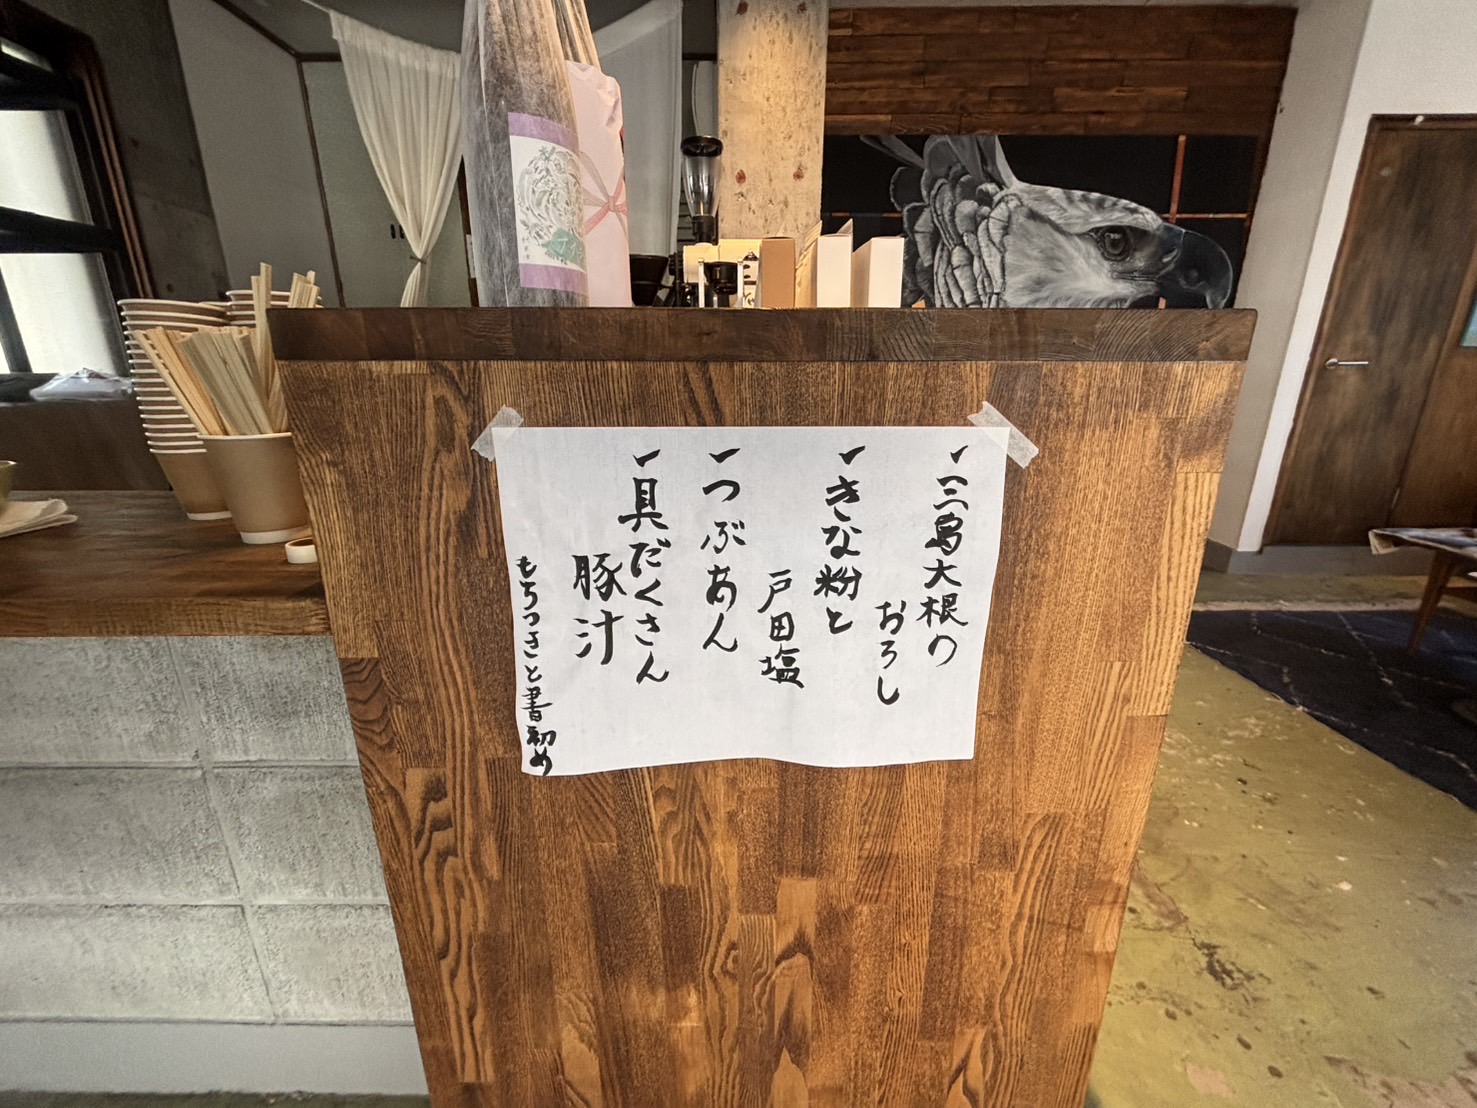 一三島大根の
おろし
一きな粉と
戸田塩
一つぶあん
一具だくさん
豚汁
もちつきと書初め